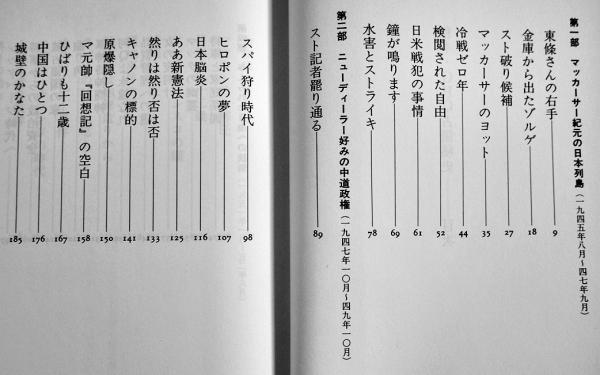 第一部 マッカーサー紀元の日本列島（一九四五年八月～四七年九月）
東條さんの右手 9
金庫から出たゾルゲ 18
スト破り候補 27
マッカーサーのヨット 35
冷戦ゼロ年 44
検閲された自由 52
日米戦犯の事情 61
鐘が鳴ります 69
水害とストライキ 78
第二部 ニューディーラー好みの中道政権（一九四七年一〇月～四九年一〇月）
スト記者罷り通る 89
スパイ狩り時代 98
ヒロポンの夢 107
日本脳炎 116
ああ新憲法 125
然りは然り否は否 133
キャノンの標的 141
原爆隠し 150
マ元帥『回想記』の空白 158
ひばりも十二歳 167
中国はひとつ 176
城壁のかなた 185